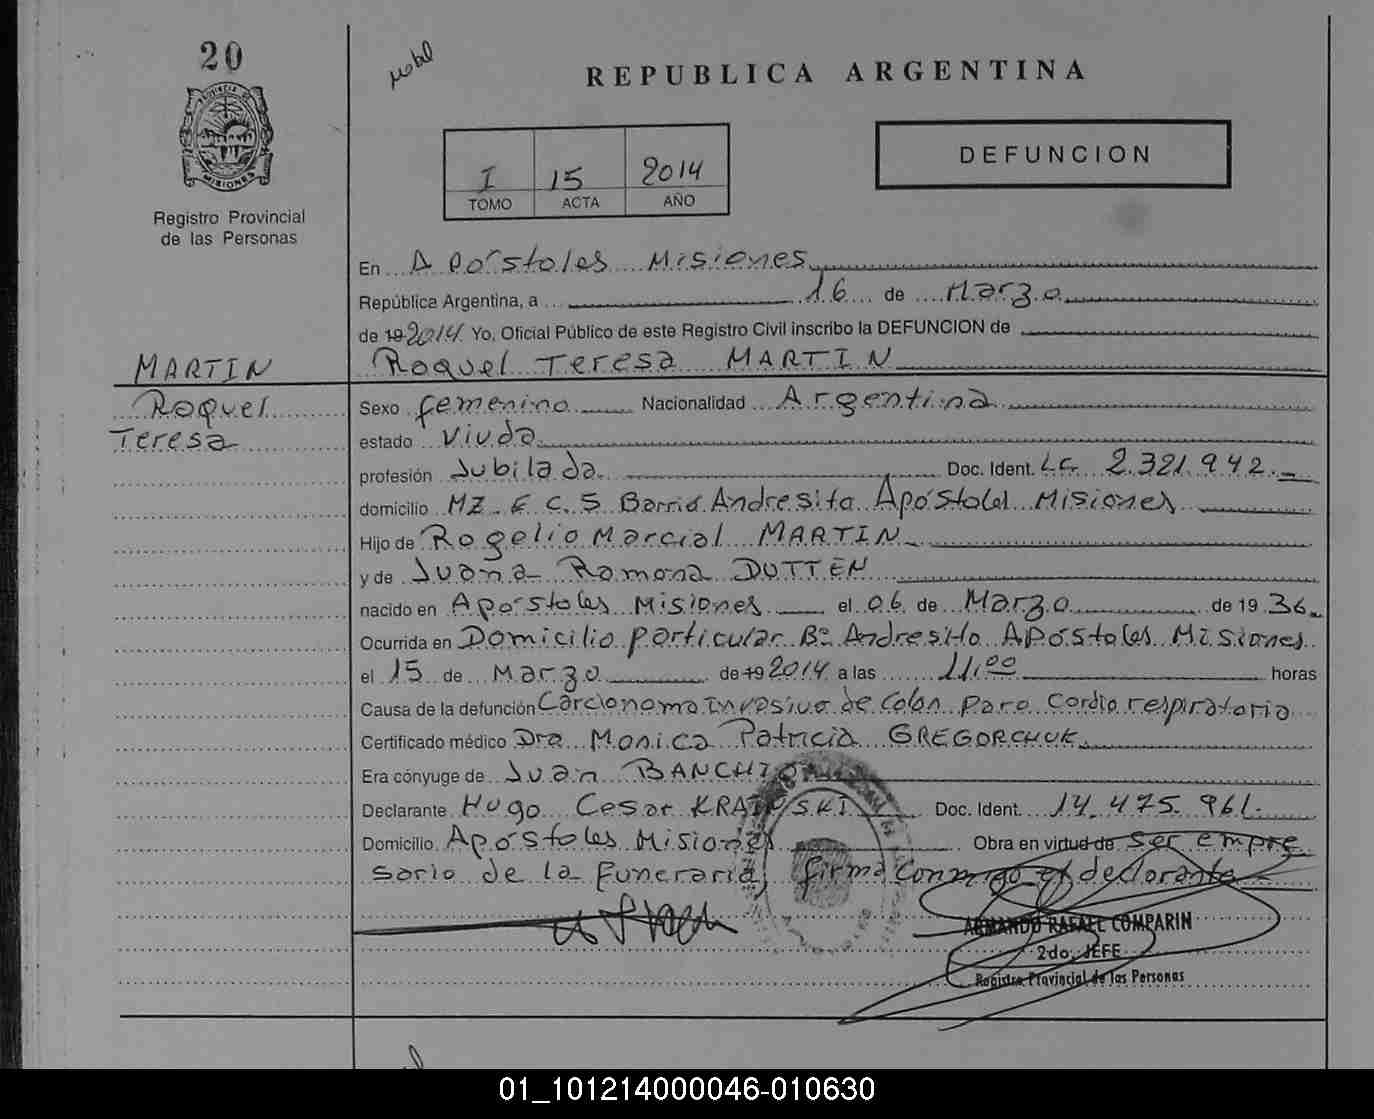 20
REPUBLICA ARGENTINA
PROVINCIA DE
MISIONES
Registro Provincial
de las Personas
I 15 2014
TOMO ACTA AÑO
DEFUNCION
En Apóstoles Misiones
República Argentina, a 16 de Marzo
de 19 2014 Yo, Oficial Público de este Registro Civil inscribo la DEFUNCION de
Raquel Teresa MARTIN
MARTIN
Raquel
Teresa
Sexo femenino Nacionalidad Argentina
estado Viuda
profesión Jubilada Doc. Ident. LC. 2.321.942.
domicilio MZ. E C. 5 Barrio Andresito Apóstoles Misiones
Hijo de Rogelio Marcial MARTIN
y de Juana Ramona DUTTEN
nacido en Apóstoles Misiones el 06 de Marzo de 19 36
Ocurrida en Domicilio particular Bº Andresito Apóstoles Misiones
el 15 de Marzo de 19 2014 a las 11,00 horas
Causa de la defunción Carcionoma invasivo de colon paro cardio respiratorio
Certificado médico Dra Monica Patricia GREGORCHUK
Era cónyuge de Juan
Declarante Hugo Cesar Doc. Ident. 14.475.961.
Domicilio Apóstoles Misiones Obra en virtud de ser empre
sario de la Funeraria, firma conmigo el declarante
ARMANDO RAFAEL COMPARIN
2do. JEFE
Registro Provincial de las Personas
01_101214000046-010630